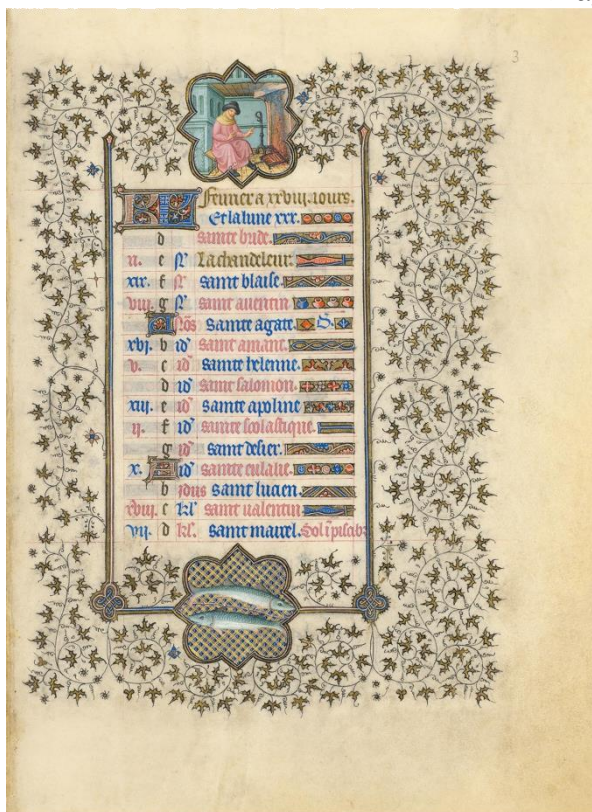 3
feurier a xxviii. iours.
Et la lune xxx.
d sainte bride.
xi. e La chandeleur.
xix. f saint blaise.
viii. g saint auentin
A Nos sainte agate.
xvi. b id saint amant.
v. c id sainte helenne.
d id saint salomon.
xiii. e id sainte apoline
ii. f id sainte scolastique.
g id saint desier.
x. A id sainte eulalie.
b idus saint lucien.
xviii. c kl saint ualentin
vii. d kl. saint maixel. Sol i piscib